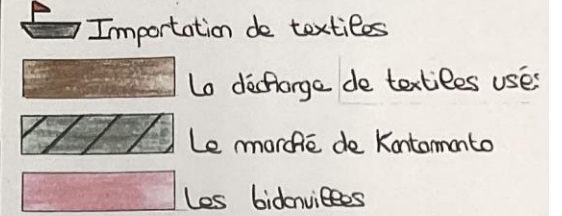 Importation de textiles
La décharge de textiles usés
Le marché de Kantamanto
Les bidonvilles